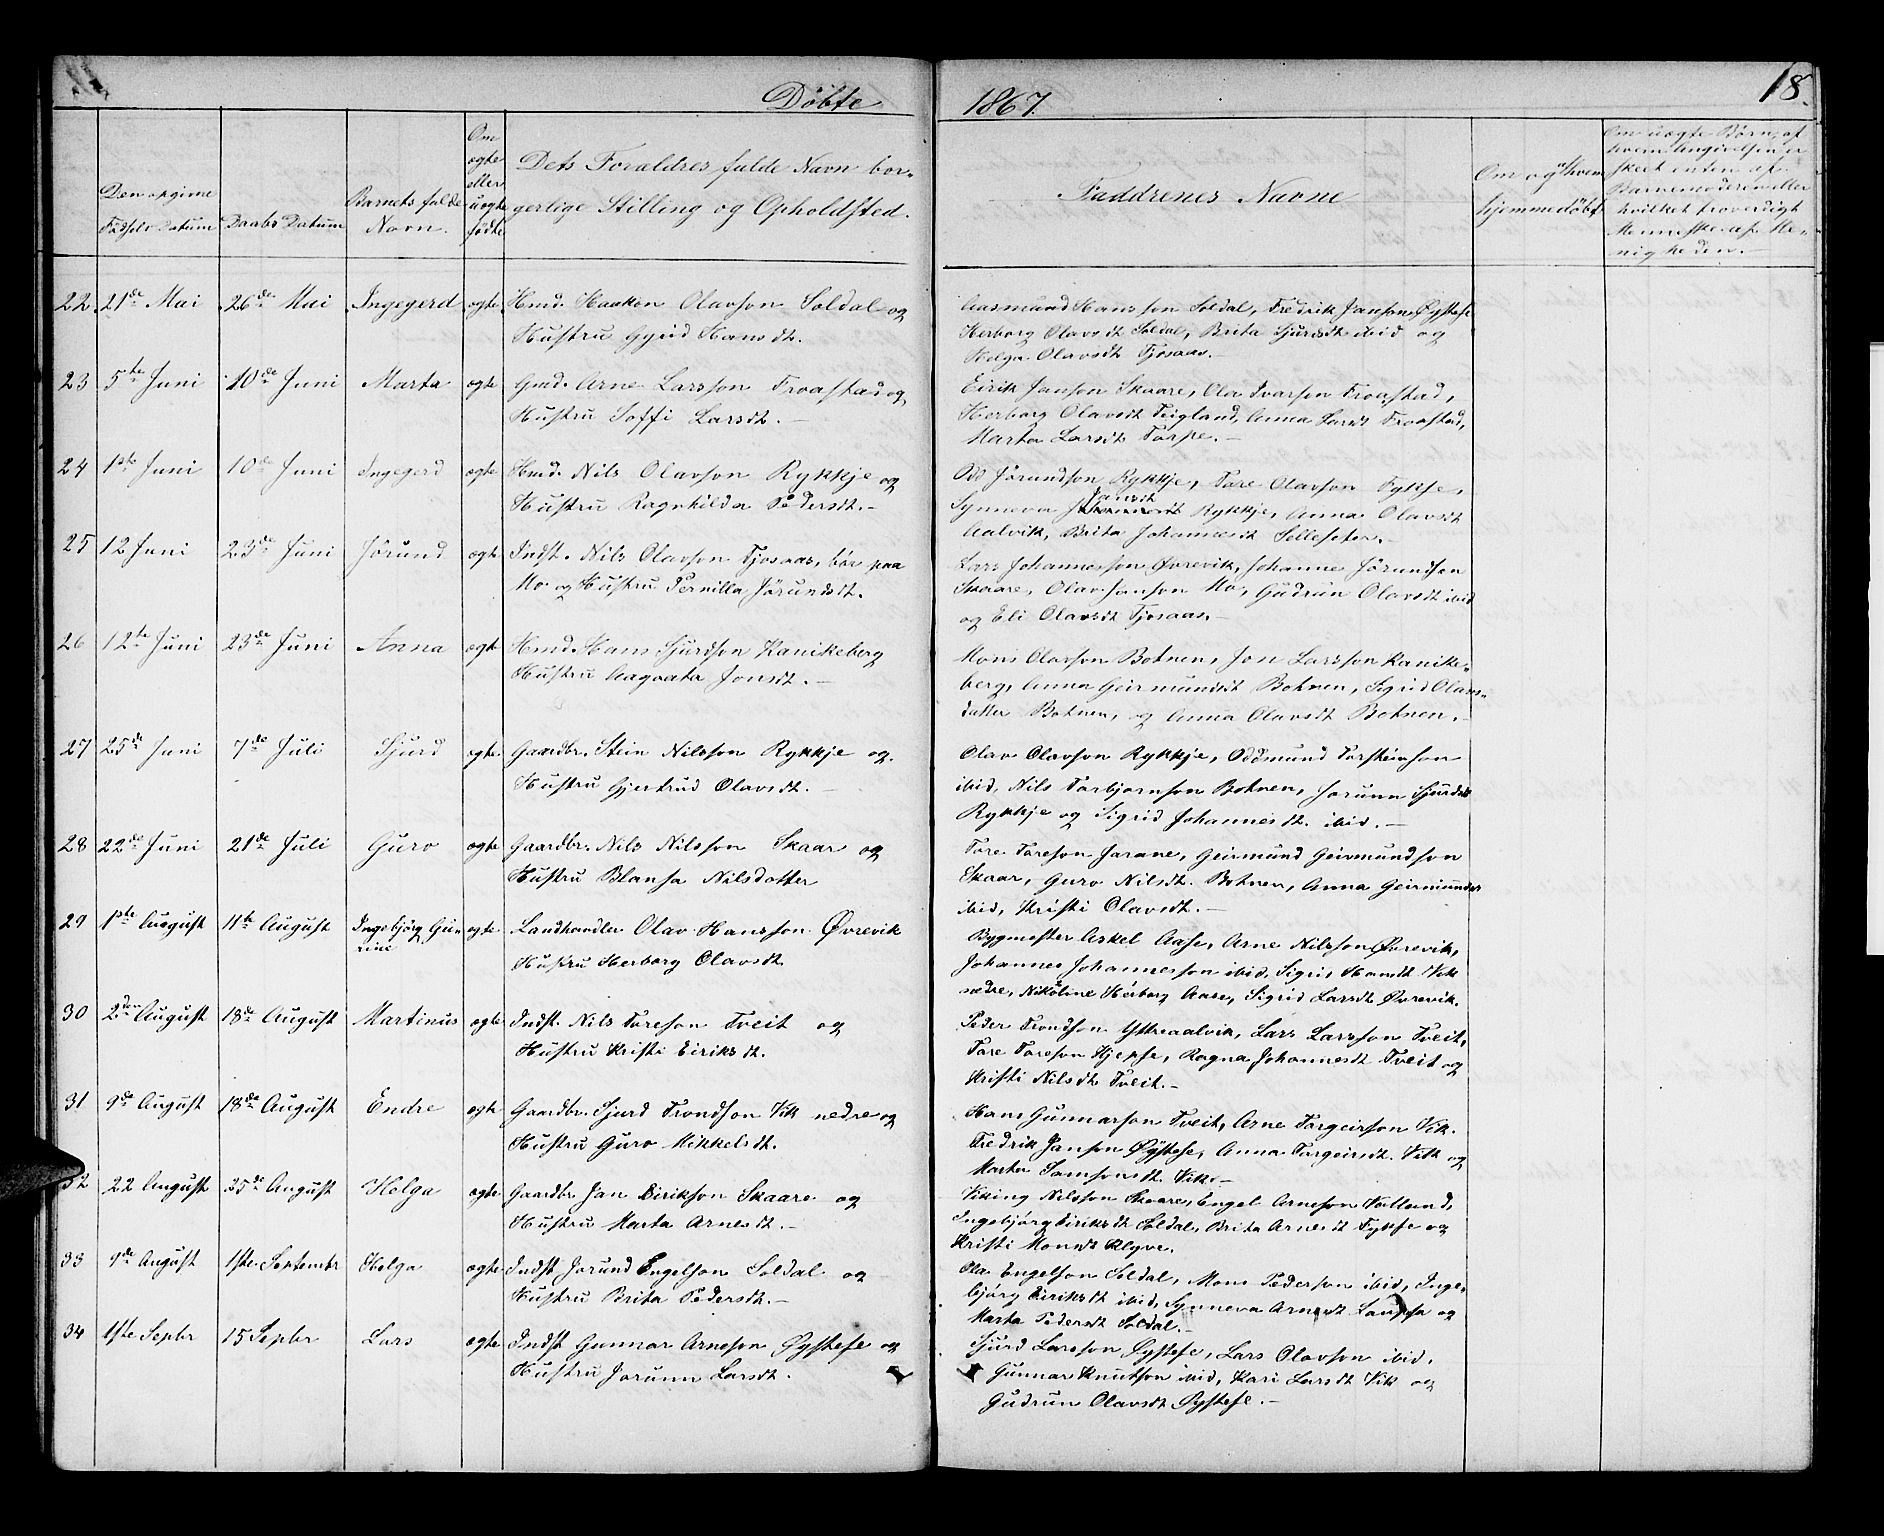 Döbte
1867.
18.
Den opgivne
Födsels Datum
Daabs Datum
Barnets fulde
Navn.
Om
ægte
eller
uægte
födte
Dets Forældres fulde Navn bor-
gerlige Stilling og Opholdsted.
Faddrenes Navne
Om og af hvem
hjemmedöbt
Om uægte Börn, af
hvem Angivelsen er
skeet enten af
Barnemoderen eller
hvilket troverdigt
Menneske af Me-
nigheden.
22 21de Mai 26de Mai Ingegerd ægte Hmd. Haakon Olavson Soldal og
Hustru Gyrid Hansdt.
Aasmund Hansson Soldal, Fredrik Janson Øystese
Herborg Olavsdt Soldal, Brita Sjursdt ibid og
Helga Olavsdt Tjosaas.-
23 5te Juni 10de Juni Marta ægte Gmd. Arne Larsson Froastad og
Hustru Soffi Larsdt.-
Eirik Janson Skaare, Ola Ivarson Froastad,
Herborg Olavsdt Teigland, Anna Larsdt Froastad,
Marta Larsdt Torpe.-
24 1ste Juni 10de Juni Ingegerd ægte Hmd. Nils Olavson Rykkje og
Hustru Ragnhilda Pedersdt.-
Odd Jörundson Rykkje, Tore Olavson Fykse,
Synneva Jansdt Rykkje, Anna Olavsdt
Aalvik, Brita Johannesdt Sellesæter.-
25 12 Juni 23de Juni Jörund ægte Indst. Nils Olavson Tjosaas, bor paa
Mo og Hustru Pernilla Jörundsdt.
Lars Johannesson Øvrevik, Johanne Jörundson
Skaare, Olav Janson Mo, Gudrun Olavsdt ibid
og Eli Olavsdt Tjosaas.-
26 12te Juni 23de Juni Anna ægte Hmd. Hans Sjurdson Kanikeberg
Hustru Aagaata Jonsdt.-
Mons Olavson Botnen, Jon Larsson Kanike-
berg, Anna Geirmundsdt Botnen, Sigrid Olavs-
datter Botnen, og Anna Olavsdt Botnen.-
27 25de Juni 7de Juli Sjurd ægte Gaardbr. Stein Nilsson Rykkje og
Hustru Gjertrud Olavsdt.-
Olav Olavson Rykkje, Oddmund Torsteinson
ibid, Nils Torbjornson Botnen, Jorunn Sjursdt
Rykkje og Sigrid Johannesdt. ibid.-
28 22de Juni 21de Juli Guro ægte Gaardbr. Nils Nilsson Skaar og
Hustru Blansa Nilsdotter
Tore Toreson Jarane, Geirmund Geirmundson
Skaar, Guro Nilsdt. Botnen, Anna Geirmundsdt
ibid, Kristi Olavsdt.-
29 1ste August 11te August Ingebjörg Gu-
rine ægte Landhandler Olav Hansson Øvrevik
Hustru Herborg Olavsdt
Bygmester Askel Aase, Arne Nilsson Øvrevik,
Johannes Johannesson ibid, Sigri Hansdt Vik
nedre, Nikoline Herborg Aase, Sigrid Larsdt Øvrevik.
30 2den August 18de August Martinus ægte Indst. Nils Toreson Tveit og
Hustru Kristi Eiriksdt.
Peder Trondson Yttreaalvik, Lars Larsson Tveit,
Tore Toreson Kjepse, Ragna Johannesdt Tveit og
Kristi Nilsdt Tveit.-
31 9de August 18de August Endre ægte Gaardbr. Sjurd Trondson Vik nedre og
Hustru Guro Mikkelsdt.
Hans Gunnarson Tveit, Arne Torgeirson Vik.
Fredrik Janson Øystese, Anna Torgeirsdt. Vik og
Marta Samsonsdt Vik.-
32 22 August 25de August Helga ægte Gaardbr Jan Eirikson Skaare og
Hustru Marta Arnesdt.-
Viking Nilsson Skaare, Engel Arneson Valland,
Ingebjörg Eiriksdt Soldal, Brita Arnesdt Fykse og
Kristi Monsdt Klyve.
33 9de August 1ste Septembr Helga ægte Indst Jorund Engelson Soldal og
Hustru Brita Pedersdt.-
Ola Engelson Soldal, Mons Pederson ibid, Inge-
björg Eiriksdt ibid, Synneva Arnesdt Laupsa og
Marta Pedersdt Soldal.-
34 1ste Sepbr 15 Sepbr Lars ægte Indst Gunnar Arneson Øystese og
Hustru Jorunn Larsdt.
Sjurd Larsson Øystese, Lars Olavson ibid,
Gunnar Knutson ibid, Kari Larsdt Vik og
Gudrun Olavsdt Øystese.-